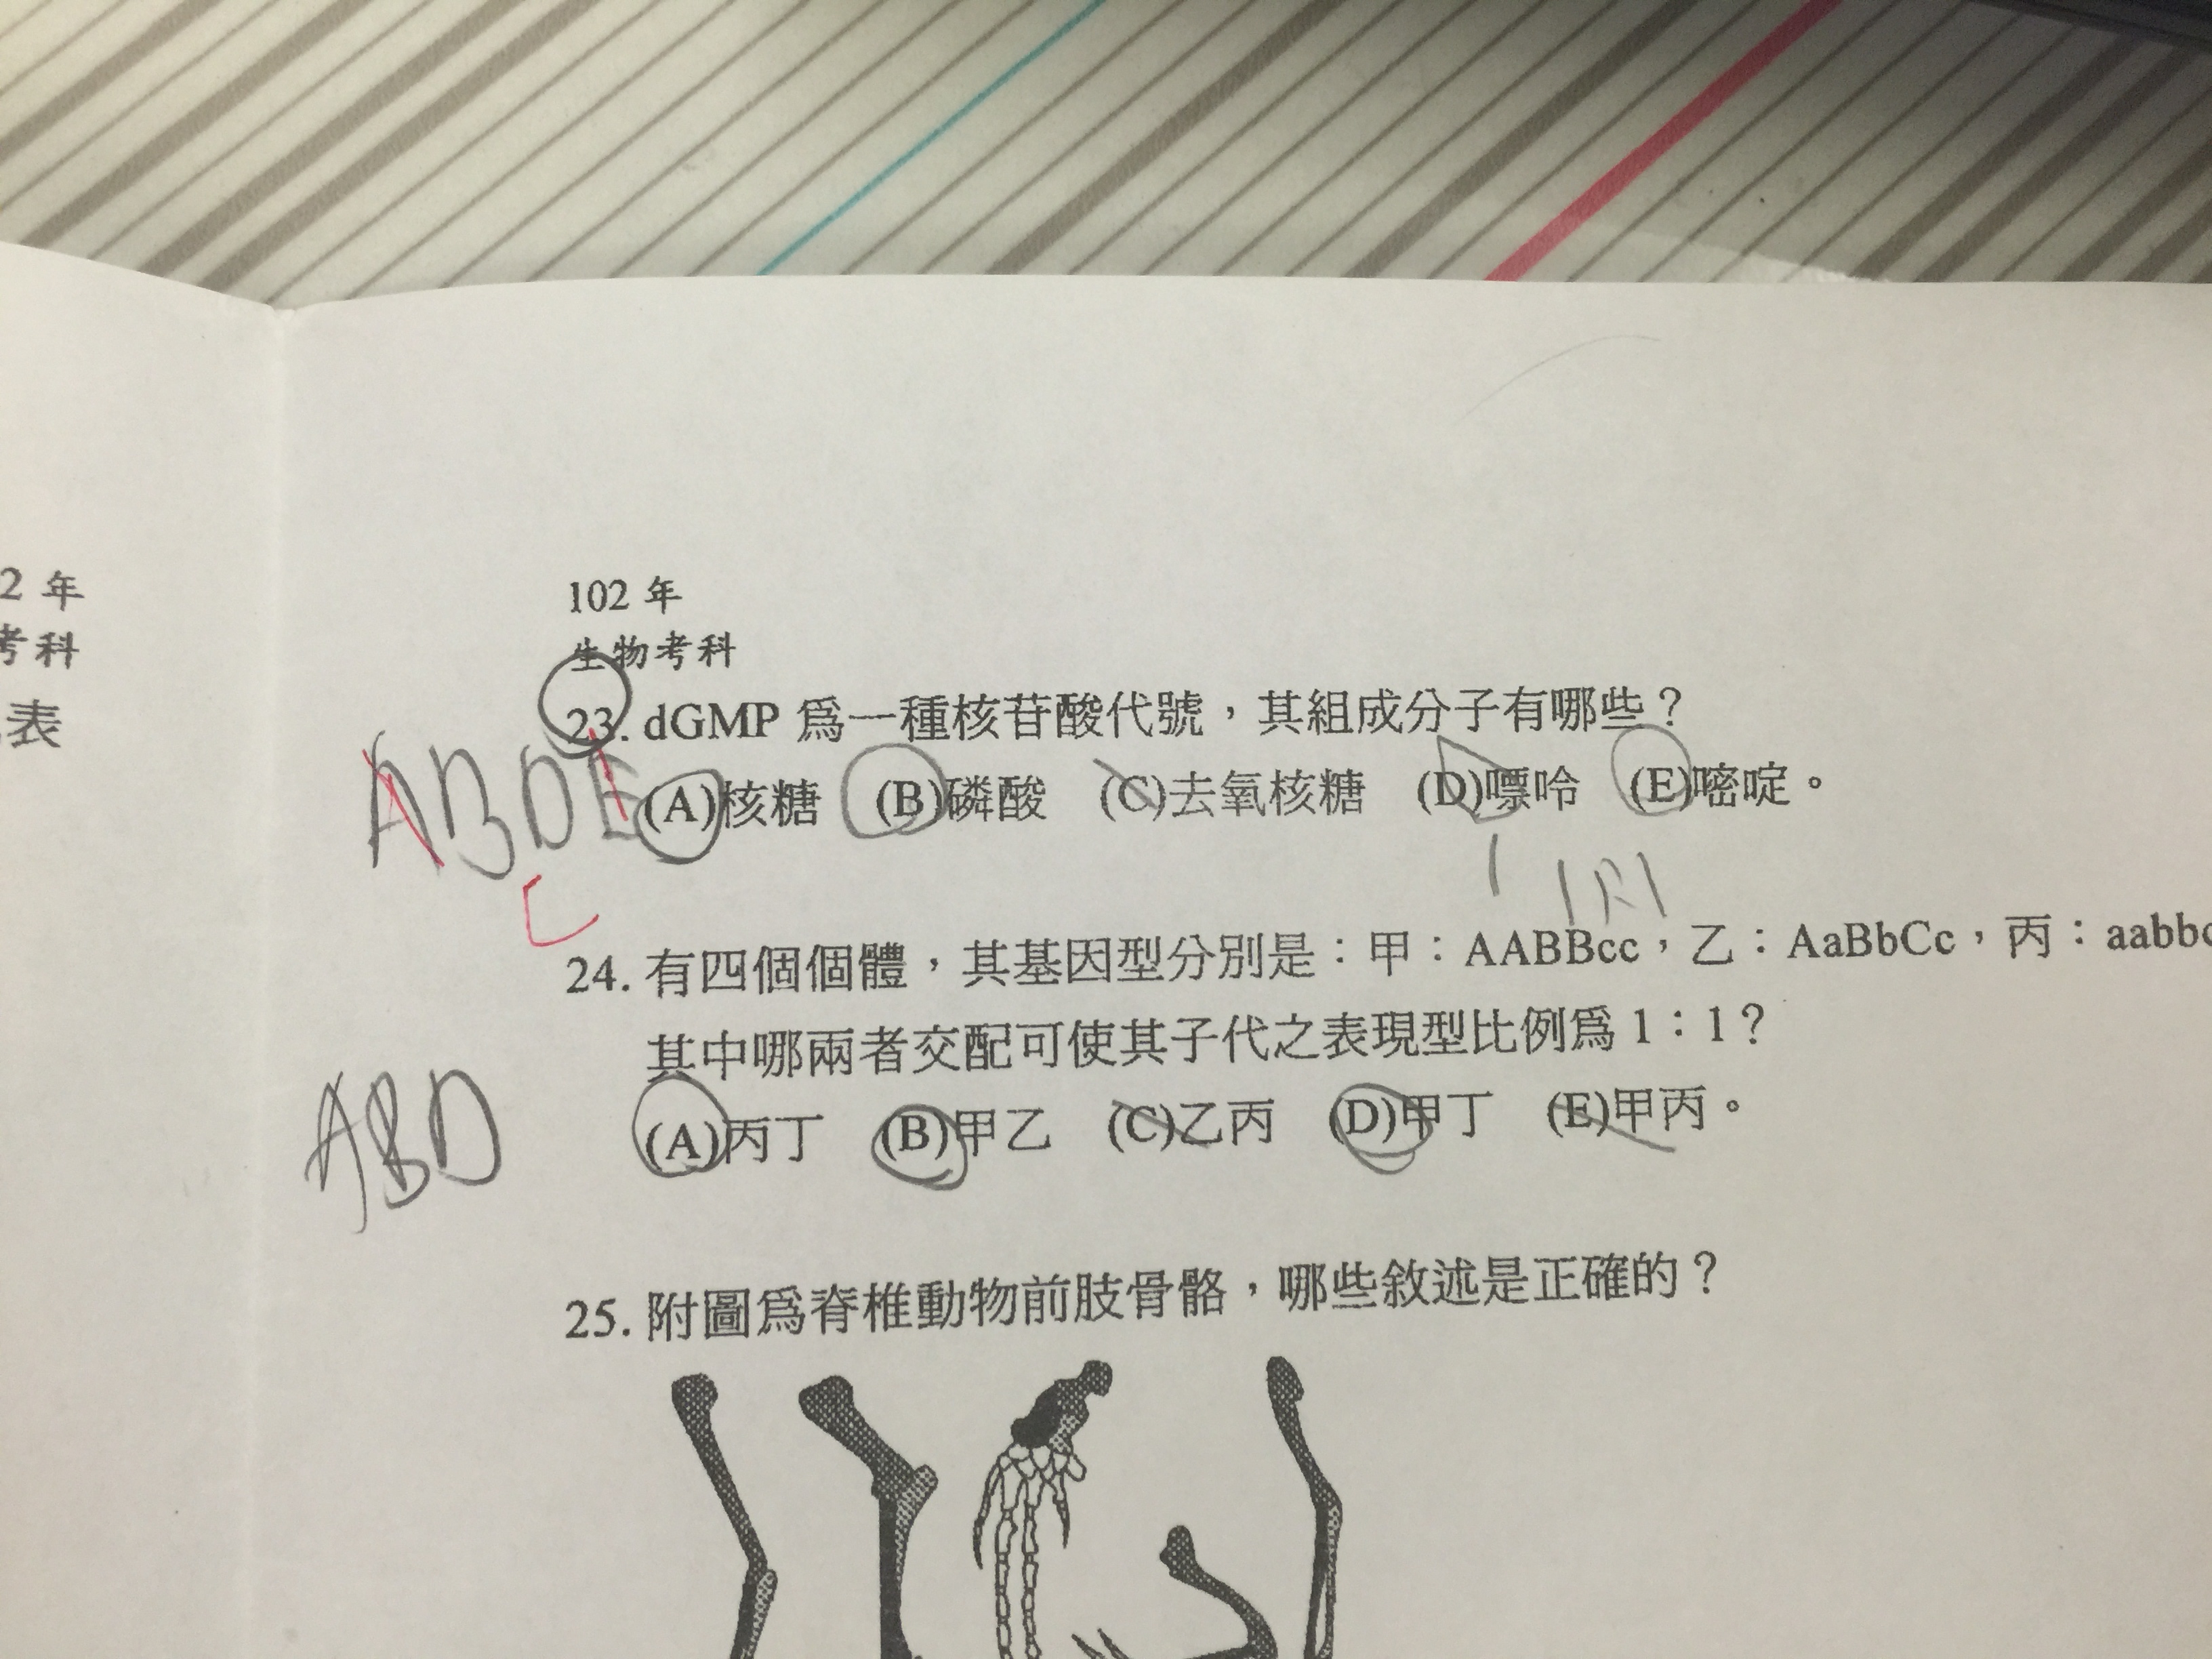 2 年
考科
表
102 年
生物考科
23. dGMP 爲一種核苷酸代號，其組成分子有哪些？
ABDE
(A)核糖 (B)磷酸 (C)去氧核糖 (D)嘌呤 (E)嘧啶。
C
24. 有四個個體，其基因型分別是：甲：AABBcc，乙：AaBbCc，丙：aabbc
其中哪兩者交配可使其子代之表現型比例爲 1：1？
ABD
(A)丙丁 (B)甲乙 (C)乙丙 (D)甲丁 (E)甲丙。
25. 附圖爲脊椎動物前肢骨骼，哪些敘述是正確的？